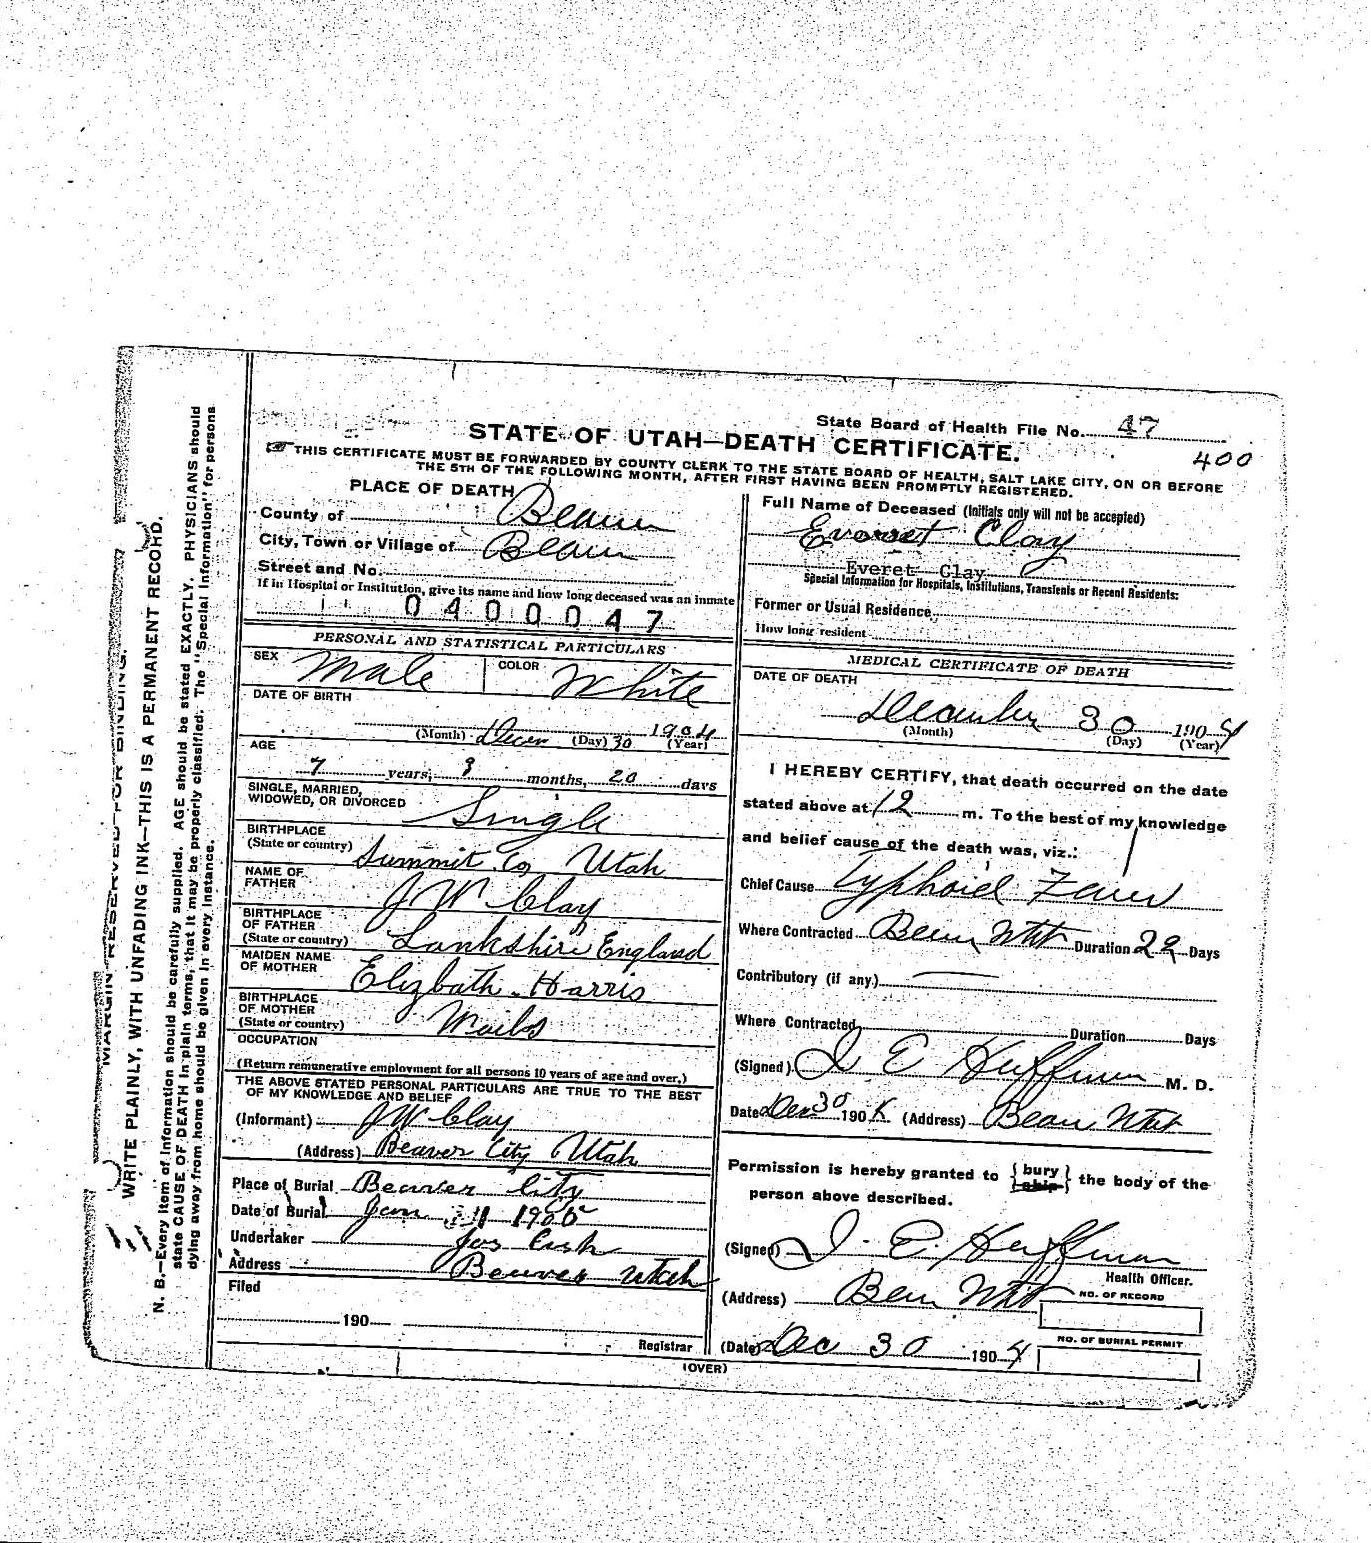 State Board of Health File No. 47
STATE OF UTAH—DEATH CERTIFICATE.
400
THIS CERTIFICATE MUST BE FORWARDED BY COUNTY CLERK TO THE STATE BOARD OF HEALTH, SALT LAKE CITY, ON OR BEFORE
THE 5TH OF THE FOLLOWING MONTH, AFTER FIRST HAVING BEEN PROMPTLY REGISTERED.
PLACE OF DEATH
County of Beaver
City, Town or Village of Beaver
Street and No.
If in Hospital or Institution, give its name and how long deceased was an inmate
0400047
PERSONAL AND STATISTICAL PARTICULARS
SEX Male COLOR White
DATE OF BIRTH
(Month) Decem (Day) 30 1904 (Year)
AGE
7 years, 9 months, 20 days
SINGLE, MARRIED,
WIDOWED, OR DIVORCED Single
BIRTHPLACE
(State or country) Summit Co Utah
NAME OF
FATHER J W Clay
BIRTHPLACE
OF FATHER
(State or country) Lankshire England
MAIDEN NAME
OF MOTHER Elizbath Harris
BIRTHPLACE
OF MOTHER
(State or country)
OCCUPATION
(Return remunerative employment for all persons 10 years of age and over.)
THE ABOVE STATED PERSONAL PARTICULARS ARE TRUE TO THE BEST
OF MY KNOWLEDGE AND BELIEF
(Informant) J W Clay
(Address) Beaver City Utah
Place of Burial Beaver City
Date of Burial Jan 1 1905
Undertaker Jos
Address Beaver Utah
Filed
190
Registrar
Full Name of Deceased (Initials only will not be accepted)
Everet Clay
Everet Clay
Special Information for Hospitals, Institutions, Transients or Recent Residents:
Former or Usual Residence
How long resident
MEDICAL CERTIFICATE OF DEATH
DATE OF DEATH
December 30 1904
(Month) (Day) (Year)
I HEREBY CERTIFY, that death occurred on the date
stated above at 12 m. To the best of my knowledge
and belief cause of the death was, viz.:
Chief Cause Typhoid Fever
Where Contracted Beaver Utah Duration 22 Days
Contributory (if any)
Where Contracted Duration Days
(Signed) J E Huffman M. D.
Date Dec 30 1904 (Address) Beaver Utah
Permission is hereby granted to { bury ship } the body of the
person above described.
(Signed) J. E. Huffman
Health Officer.
(Address) Beaver Utah
NO. OF RECORD
NO. OF BURIAL PERMIT
(Date) Dec 30 1904
(OVER)
MARGIN RESERVED FOR BINDING.
WRITE PLAINLY, WITH UNFADING INK—THIS IS A PERMANENT RECORD.
N. B.—Every item of information should be carefully supplied. AGE should be stated EXACTLY. PHYSICIANS should
state CAUSE OF DEATH in plain terms, that it may be properly classified. The "Special Information" for persons
dying away from home should be given in every instance.